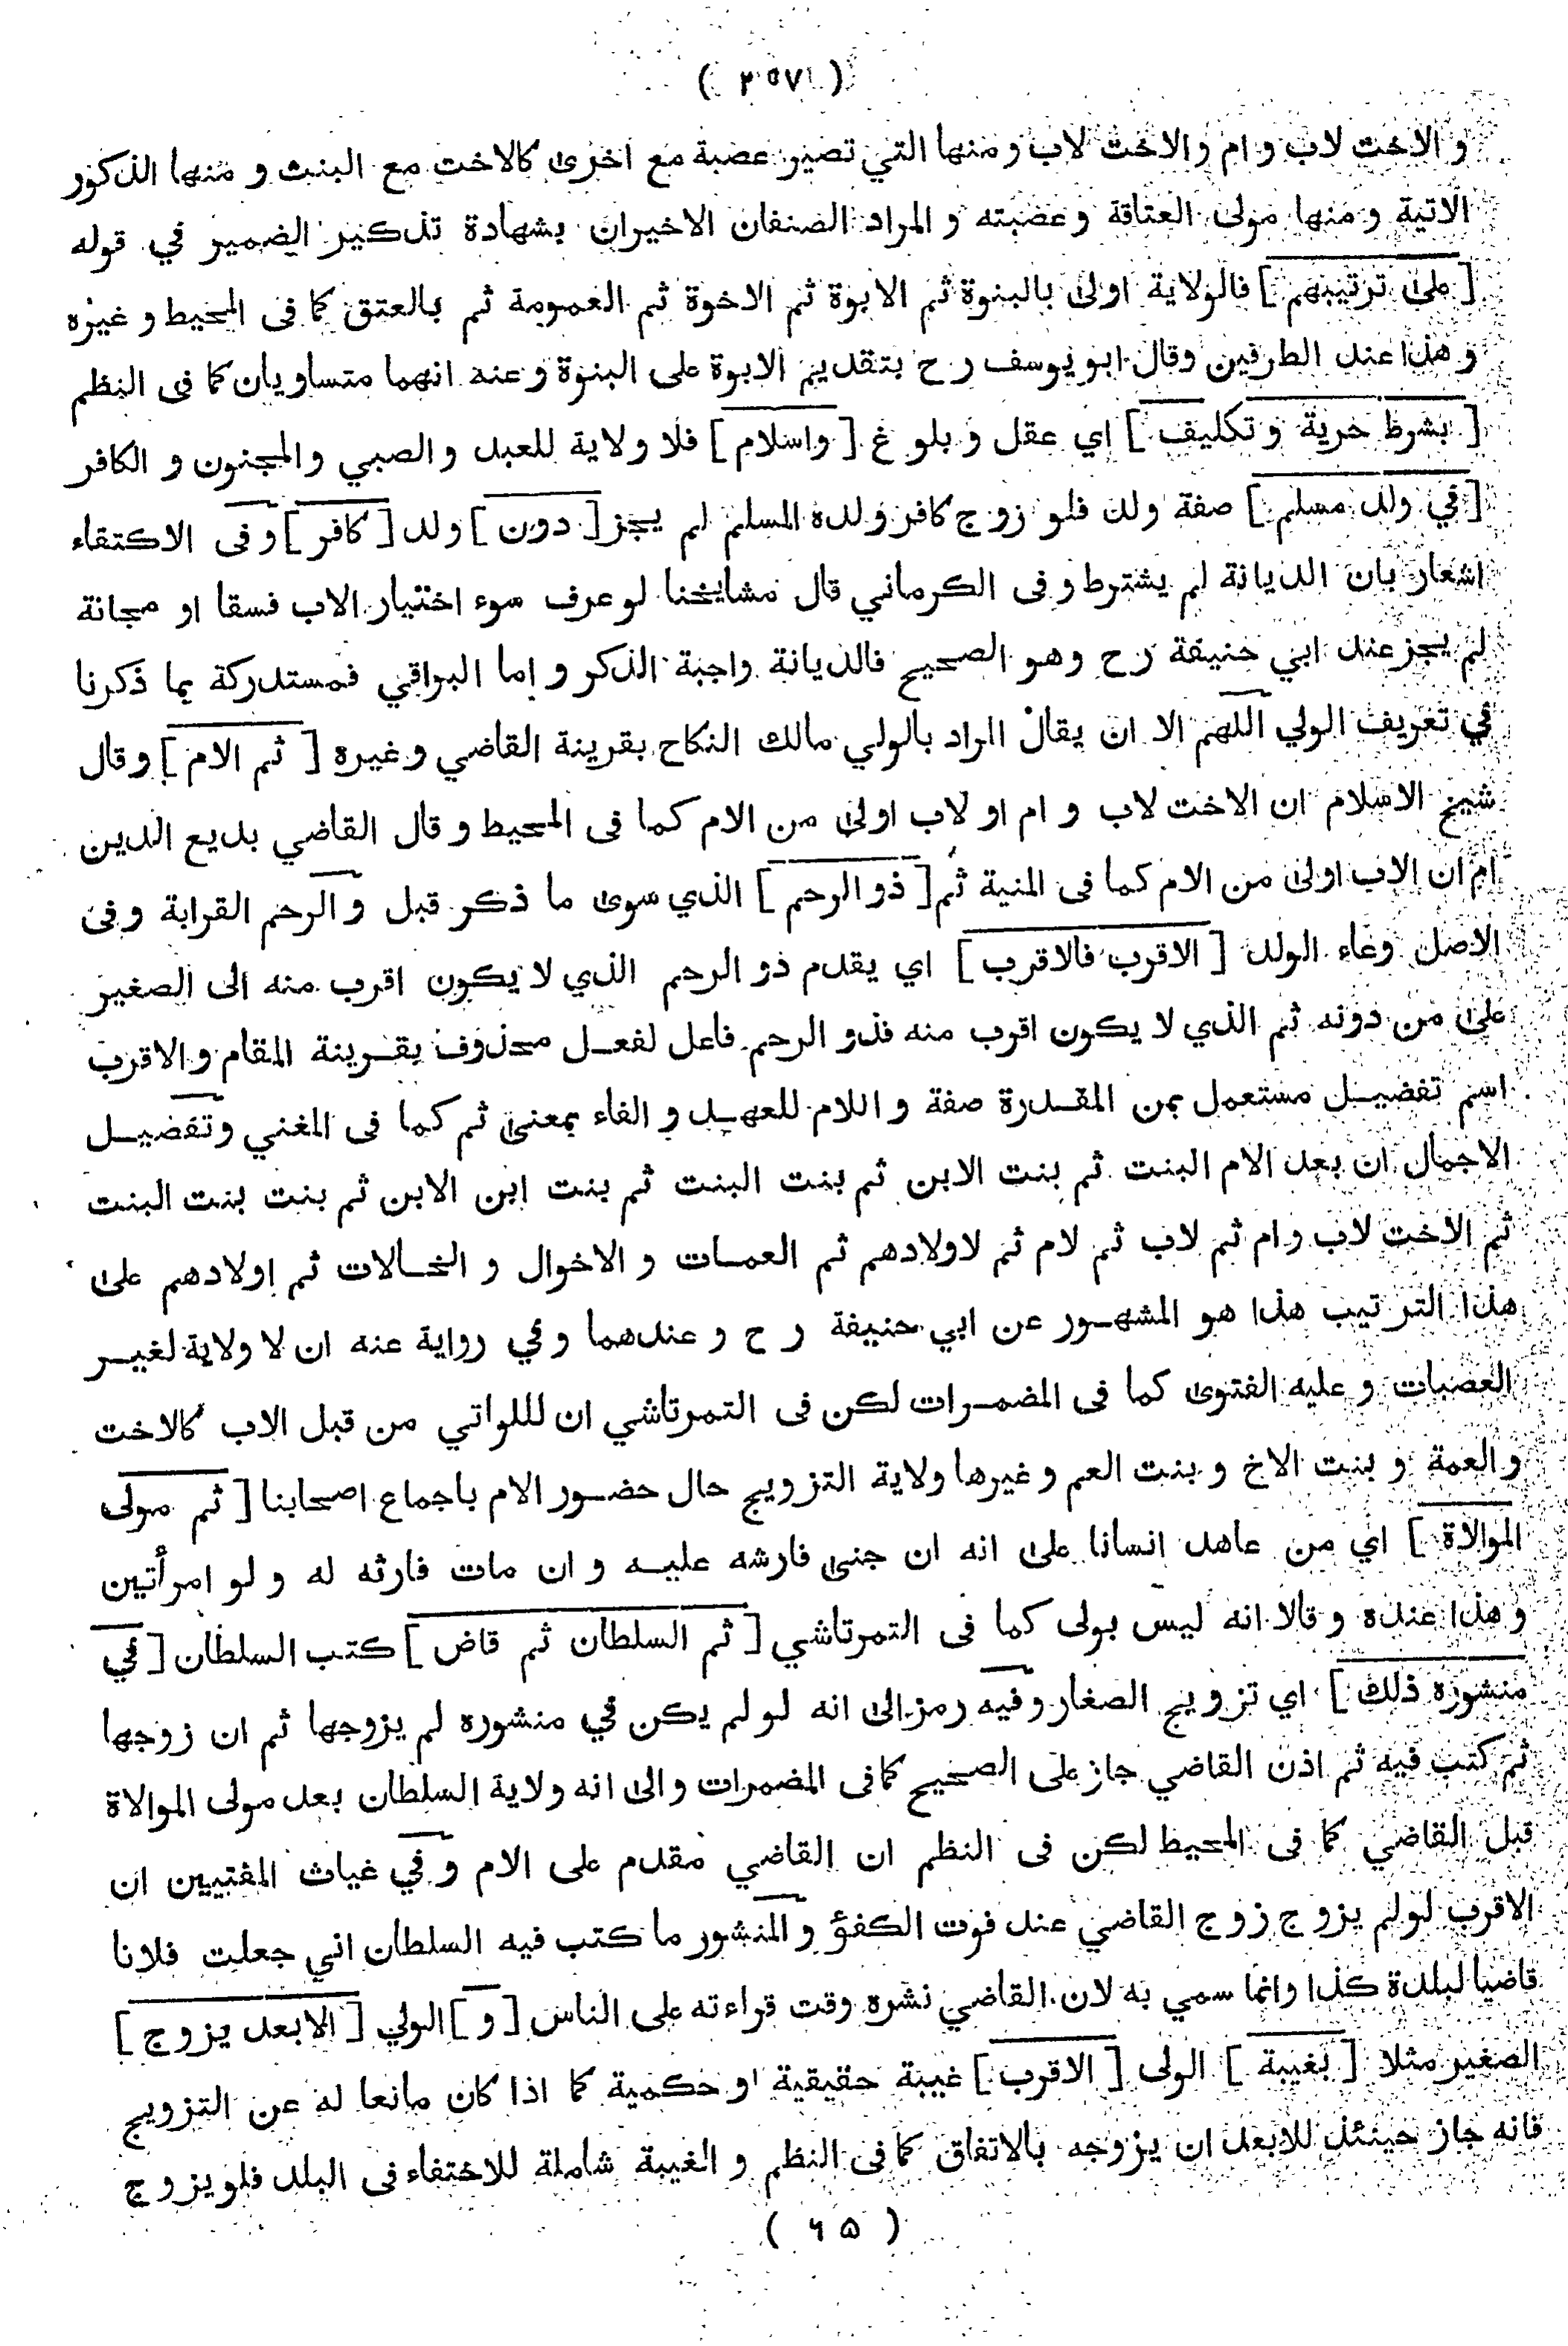 ( ٢٥٧ )
و الاخت لاب و ام و الاخت لاب و منها التي تصير عصبة مع اخرى كالاخت مع البنت و منها الذكور
الاتية و منها مولى العتاقة و عصبته و المراد الصنفان الاخيران بشهادة تذكير الضمير في قوله
[ على ترتيبهم ] فالولاية اولى بالبنوة ثم الابوة ثم الاخوة ثم العمومة ثم بالعتق كما فى المحيط و غيره
و هذا عند الطرفين وقال ابو يوسف ر ح بتقديم الابوة على البنوة و عنه انهما متساويان كما فى النظم
[ بشرط حرية و تكليف ] اي عقل و بلوغ [ و اسلام ] فلا ولاية للعبد و الصبي والمجنون و الكافر
[ في ولد مسلم ] صفة ولد فلو زوج كافر ولده المسلم لم يجز [ دون ] ولد [ كافر ] و فى الاكتفاء
اشعار بان الديانة لم يشترط و فى الكرماني قال مشايخنا لو عرف سوء اختيار الاب فسقا او مجانة
لم يجز عند ابي حنيفة ر ح وهو الصحيح فالديانة واجبة الذكر و اما البراقي فمستدركة بما ذكرنا
في تعريف الولي اللهم الا ان يقال المراد بالولي مالك النكاح بقرينة القاضي و غيره [ ثم الام ] و قال
شيخ الاسلام ان الاخت لاب و ام او لاب اولى من الام كما فى المحيط و قال القاضي بديع الدين
ام ان الاب اولى من الام كما فى المنية ثم [ ذو الرحم ] الذي سوى ما ذكر قبل و الرحم القرابة و فى
الاصل وعاء الولد [ الاقرب فالاقرب ] اي يقدم ذو الرحم الذي لا يكون اقرب منه الى الصغير
على من دونه ثم الذي لا يكون اقرب منه فذو الرحم فاعل لفعل محذوف بقرينة المقام و الاقرب
اسم تفضيل مستعمل بمن المقدرة صفة و اللام للعهد و الفاء بمعنى ثم كما فى المغني و تفضيل
الاجمال ان بعد الام البنت ثم بنت الابن ثم بنت البنت ثم بنت ابن الابن ثم بنت بنت البنت
ثم الاخت لاب و ام ثم لاب ثم لام ثم لاولادهم ثم العمات و الاخوال و الخالات ثم اولادهم على
هذا الترتيب هذا هو المشهور عن ابي حنيفة ر ح و عندهما و في رواية عنه ان لا ولاية لغير
العصبات و عليه الفتوى كما فى المضمرات لكن فى التمرتاشي ان لللواتي من قبل الاب كالاخت
و العمة و بنت الاخ و بنت العم و غيرها ولاية التزويج حال حضور الام باجماع اصحابنا [ ثم مولى
الموالاة ] اي من عاهد انسانا على انه ان جنى فارشه عليه و ان مات فارثه له و لو امرأتين
و هذا عنده و قالا انه ليس بولى كما فى التمرتاشي [ ثم السلطان ثم قاض ] كتب السلطان [ في
منشوره ذلك ] اي تزويج الصغار و فيه رمز الى انه لو لم يكن في منشوره لم يزوجها ثم ان زوجها
ثم كتب فيه ثم اذن القاضي جاز على الصحيح كما فى المضمرات و الى انه ولاية السلطان بعد مولى الموالاة
قبل القاضي كما فى المحيط لكن فى النظم ان القاضي مقدم على الام و في غياث المفتيين ان
الاقرب لو لم يزوج زوج القاضي عند فوت الكفؤ و المنشور ما كتب فيه السلطان اني جعلت فلانا
قاضيا لبلدة كذا وانما سمي به لان القاضي نشره وقت قراءته على الناس [ و ] الولي [ الابعد يزوج ]
الصغير مثلا [ بغيبة ] الولى [ الاقرب ] غيبة حقيقية او حكمية كما اذا كان مانعا له عن التزويج
فانه جاز حينئذ للابعد ان يزوجه بالاتفاق كما فى النظم و الغيبة شاملة للاختفاء فى البلد فلو يزوج
( ٦٥ )